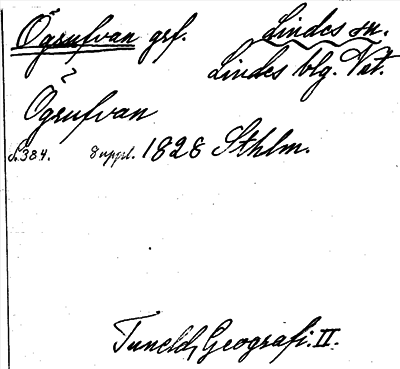 Ögrufvan grf. Lindes sn.
Lindes blg. Vst.
Ögrufvan
S. 384. 8 uppl. 1828 Sthlm.
Tuneld, Geografi. II.